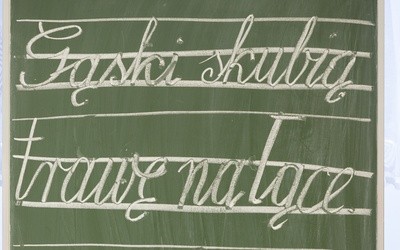 Gąski skubią
trawę na łące